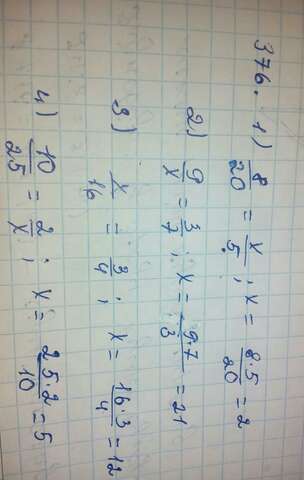 376. 1) 8/20 = x/5 ; x = 8·5/20 = 2
2) 9/x = 3/7 ; x = 9·7/3 = 21
3) x/16 = 3/4 ; x = 16·3/4 = 12
4) 10/25 = 2/x ; x = 25·2/10 = 5